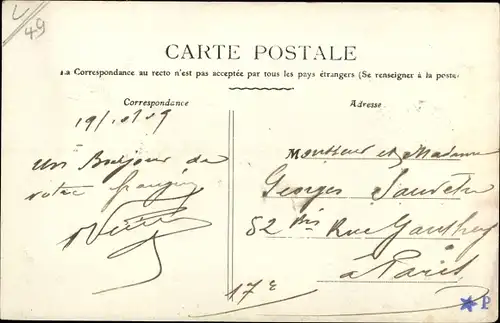 49
CARTE POSTALE
La Correspondance au recto n'est pas acceptée par tous les pays étrangers (Se renseigner à la poste)
Correspondance
Adresse
Un Bonjour de
votre
Monsieur et Madame
Georges
52 bis Rue Gauthey
à Paris
17e
P